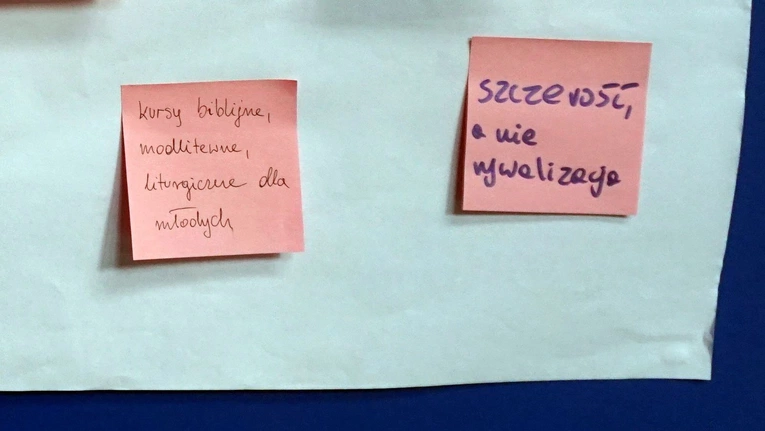 kursy biblijne,
modlitewne,
liturgiczne dla
młodych
szczerość,
a nie
rywalizacja